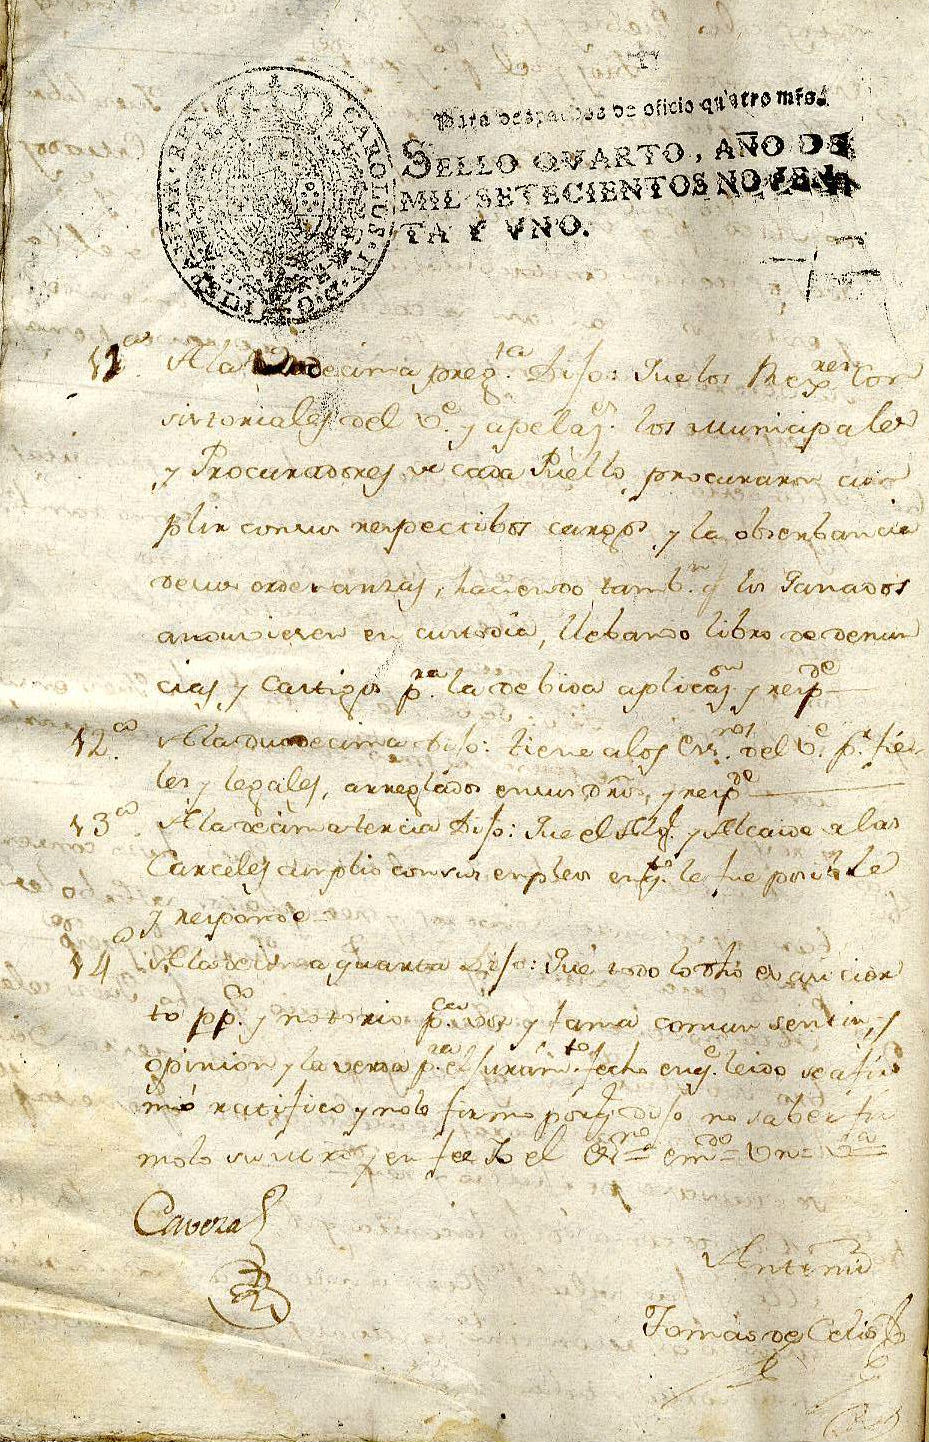 Para despachos de oficio quatro mrs.
SELLO QVARTO, AÑO DE
MIL SETECIENTOS NOVEN
TA Y VNO.
CAROLUS IV D G HISPANIAR REX
11ª A la decima preg.ta Dijo: Que los Rex.res Con
sistoriales del V.e y apelaz.n los Municipales
y Procuradores de cada Puello, procuraron cum
plir con sus respectibos cargos, y la obserbancia
de sus ordenanzas, haciendo tamb.n q los Ganados
andubieren en custodia, llebando libro de denun
cias y castigos p.ra la debida aplicaz.on y resp.de
12.ª A la duodecima Dijo: tiene a los Esn.nos del V.e p.r fie
les y legales, arreglados en sus dros, y resp.de
13.ª A la decima tercia Dijo: Que el Alg.l y Alcaide de las
Carceles cumplio con sus enpleos en q.to le fue posible
y responde
14.ª A la decima quarta Dijo: Que todo lo dho es asi cier
to pp.co y notorio p.ca voz y fama comun sentir, y
opinion y la verdad p.ra el juram.to fecho en q.e leido se afir
mó ratifico y no lo firmo porq. Dijo no saber fir
molo su mrd y en fee Yo el Es.no = em.do =
Cavera
Antemi
Tomás de Celis